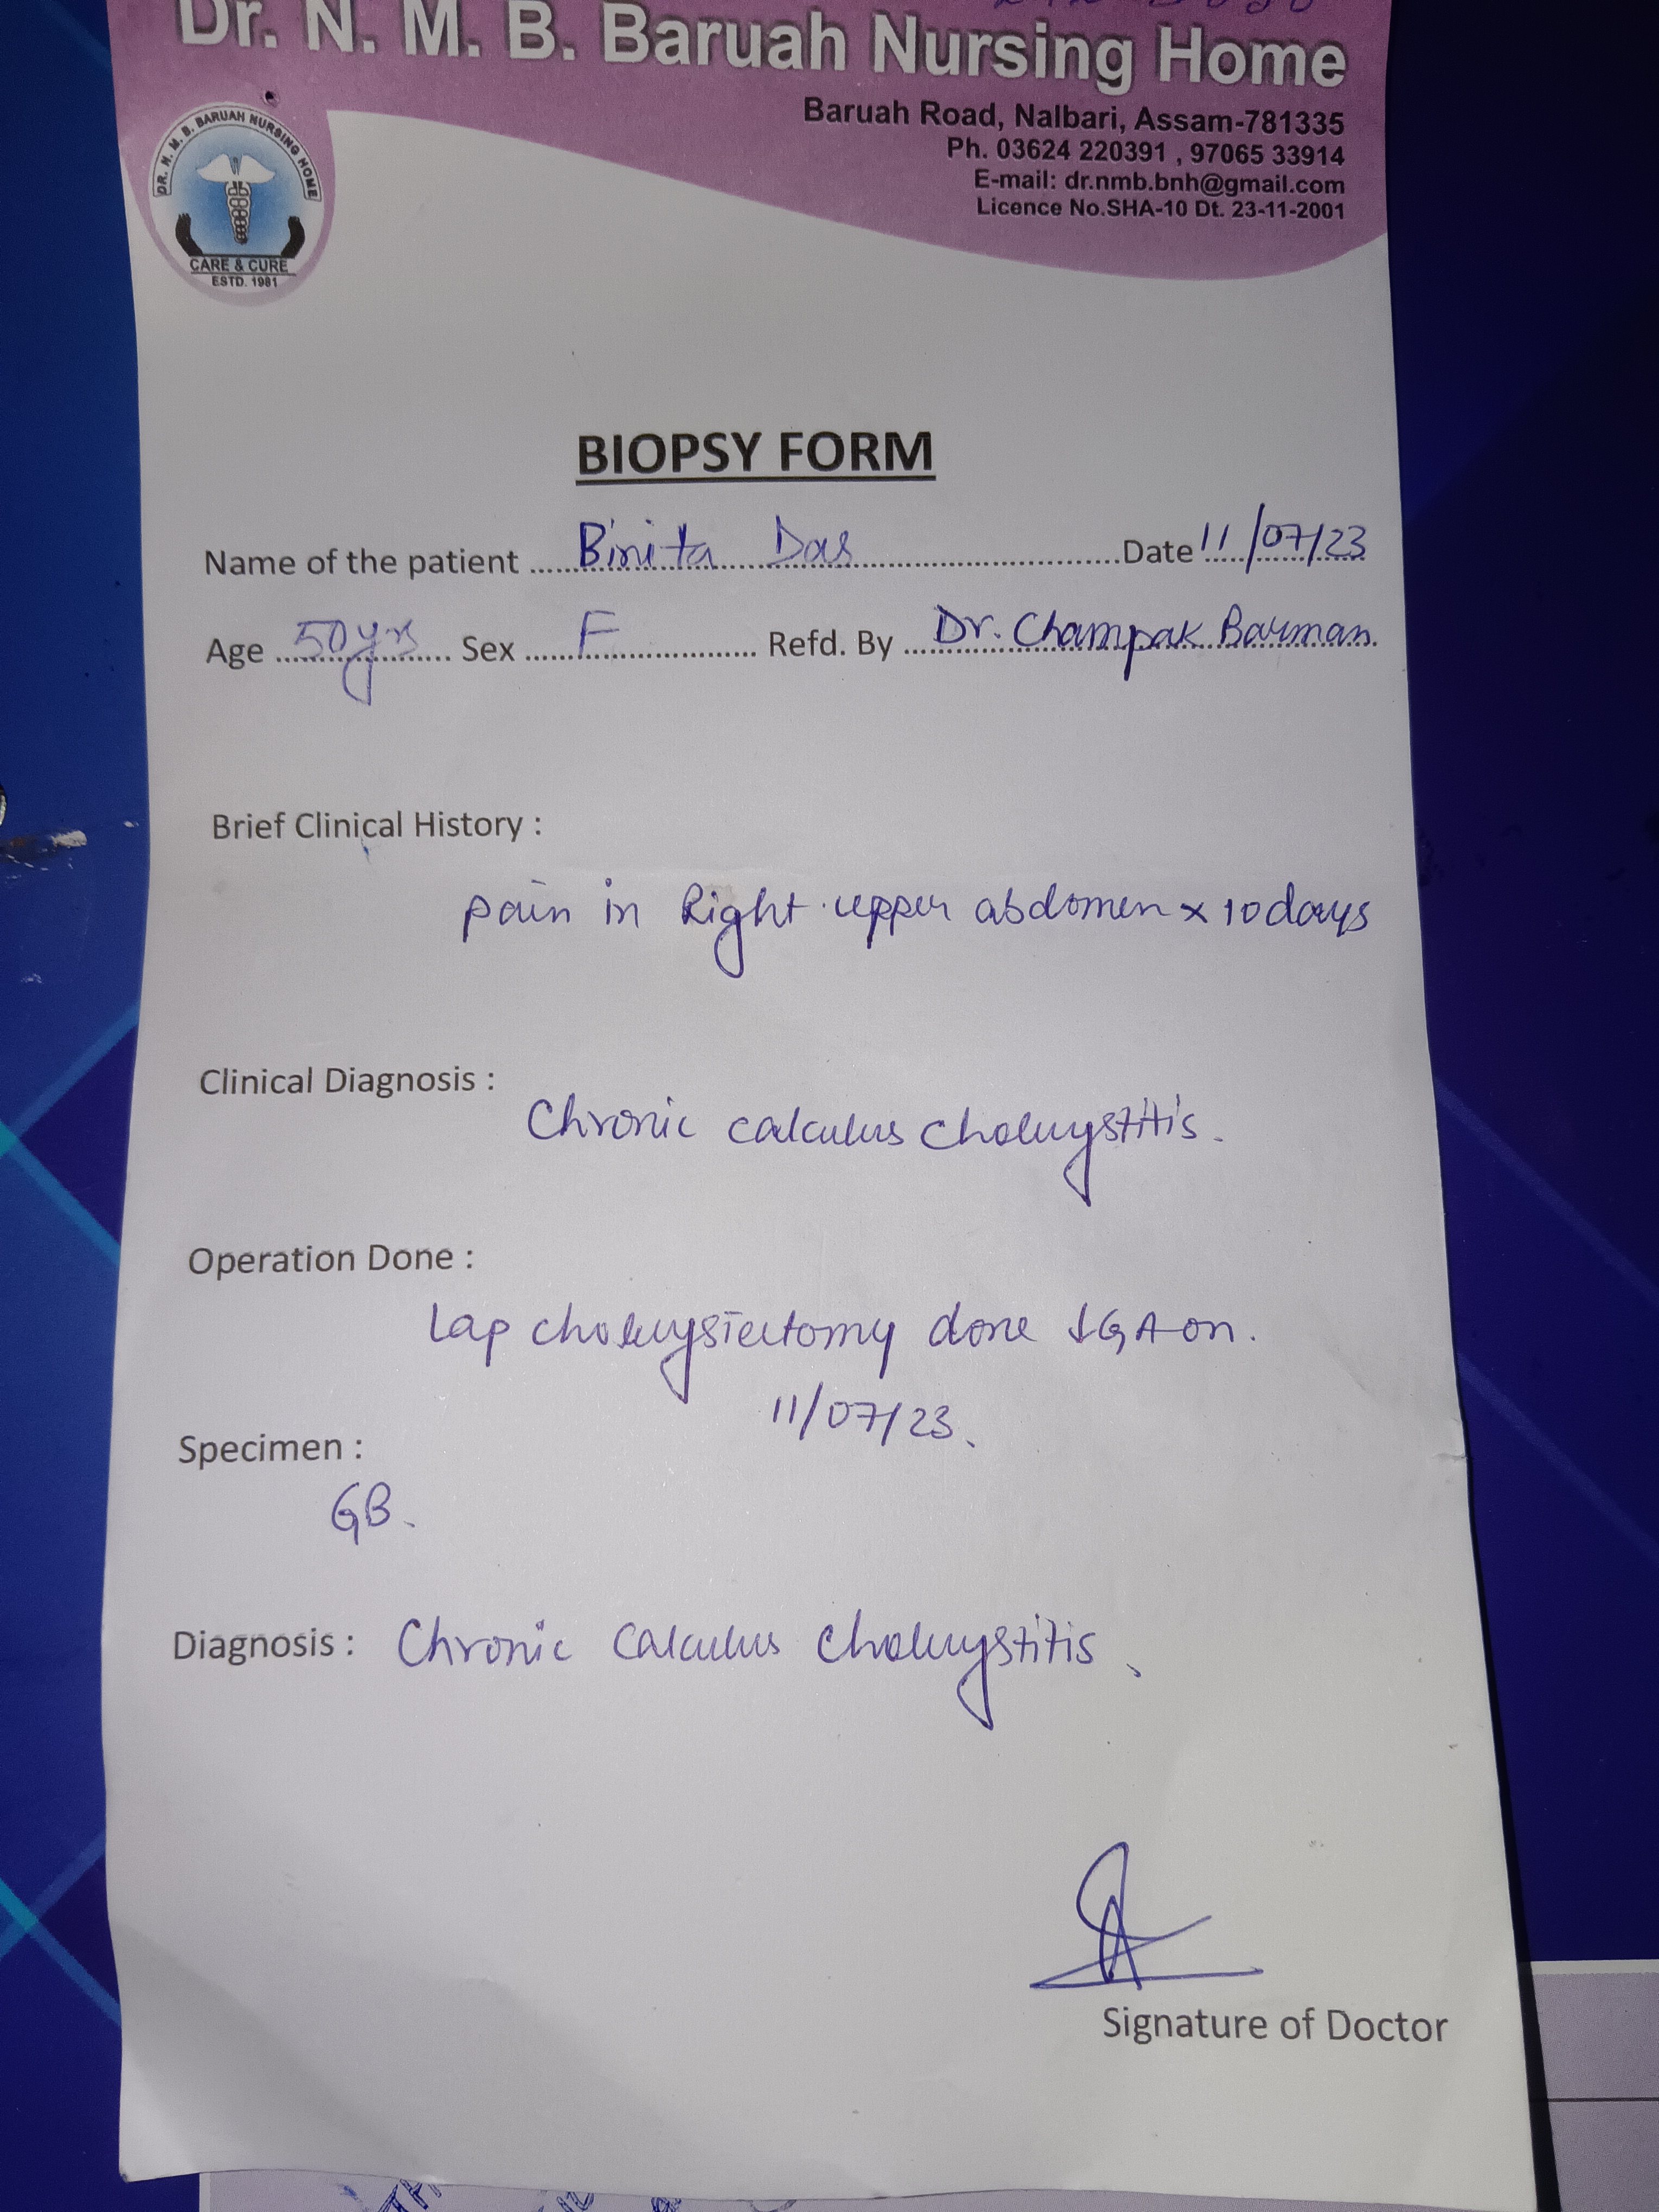 Dr. N. M. B. Baruah Nursing Home
Baruah Road, Nalbari, Assam-781335
Ph. 03624 220391 , 97065 33914
E-mail: dr.nmb.bnh@gmail.com
Licence No.SHA-10 Dt. 23-11-2001
DR. N. M. B. BARUAH NURSING HOME
CARE & CURE
ESTD. 1981
BIOPSY FORM
Name of the patient Binita Das Date 11/07/23
Age 50yrs Sex F Refd. By Dr. Champak Barman.
Brief Clinical History :
pain in Right upper abdomen x 10 days
Clinical Diagnosis :
Chronic calculus cholecystitis.
Operation Done :
Lap cholecystectomy done ↓GA on.
11/07/23.
Specimen :
GB.
Diagnosis : Chronic calculus cholecystitis.
Signature of Doctor